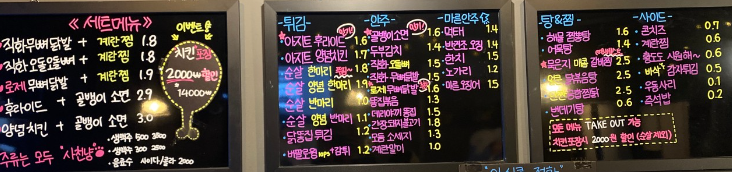 《 세트메뉴 》
직화무뼈닭발 + 계란찜 1.8
직화오돌뼈 + 계란찜 1.8
로제무뼈닭발 + 계란찜 1.9
후라이드 + 골뱅이소면 2.9
양념치킨 + 골뱅이소면 3.0
생맥주 500 3500
생맥주 300 2500
음료수 사이다/콜라 2000
주류는 모두 "사천냥"
이벤트
치킨포장
2000원할인
14000
- 튀김 -
아지트 후라이드 1.6
아지트 양념치킨 1.7
순살 한마리 1.8
순살 양념 한마리 1.9
순살 반마리 1.0
순살 양념 반마리 1.1
닭똥집 튀김 1.2
버팔로윙 10PS + 감튀 1.2
- 안주 -
골뱅이소면 1.6
두부김치 1.4
직화
직화 무뼈닭발 1.5
로제무뼈닭발 1.6
똥집볶음 1.3
데리야끼 통집 1.5
간장돼지불고기 1.8
모듬 소세지 1.3
계란말이 1.0
- 마른안주
먹태 1.4
반건조 오징어 1.4
한치 1.5
노가리 1.2
마른오징어 1.5
탕&찜 -
해물 짬뽕탕 2.6
어묵탕 1.4
묵은지 갈비찜 2.5
닭볶음탕 2.6
2.5
번데기탕 0.6
- 사이드 -
콘치즈 0.7
계란찜 0.6
황도도 시원해~ 0.6
바삭 감자튀김 0.5
우동사리 0.1
음석밥 0.2
모든 메뉴 TAKE OUT 가능
치킨포장시 2000원 할인 (순살제외)